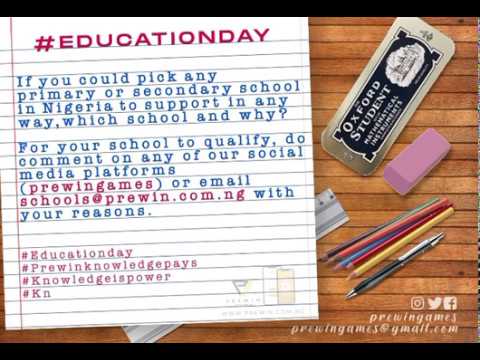 #EDUCATIONDAY
If you could pick any
primary or secondary school
in Nigeria to support in any
way,which school and why?
For your school to qualify, do
comment on any of our social
media platforms
(prewingames) or email
schools@prewin.com.ng with
your reasons.
#Educationday
#Prewinknowledgepays
#Knowledgeispower
#Kn
PREWIN
WWW.PREWIN.COM.NG
OXFORD
STUDENT
MATHEMATICAL
INSTRUMENTS
prewingames
prewingames@gmail.com